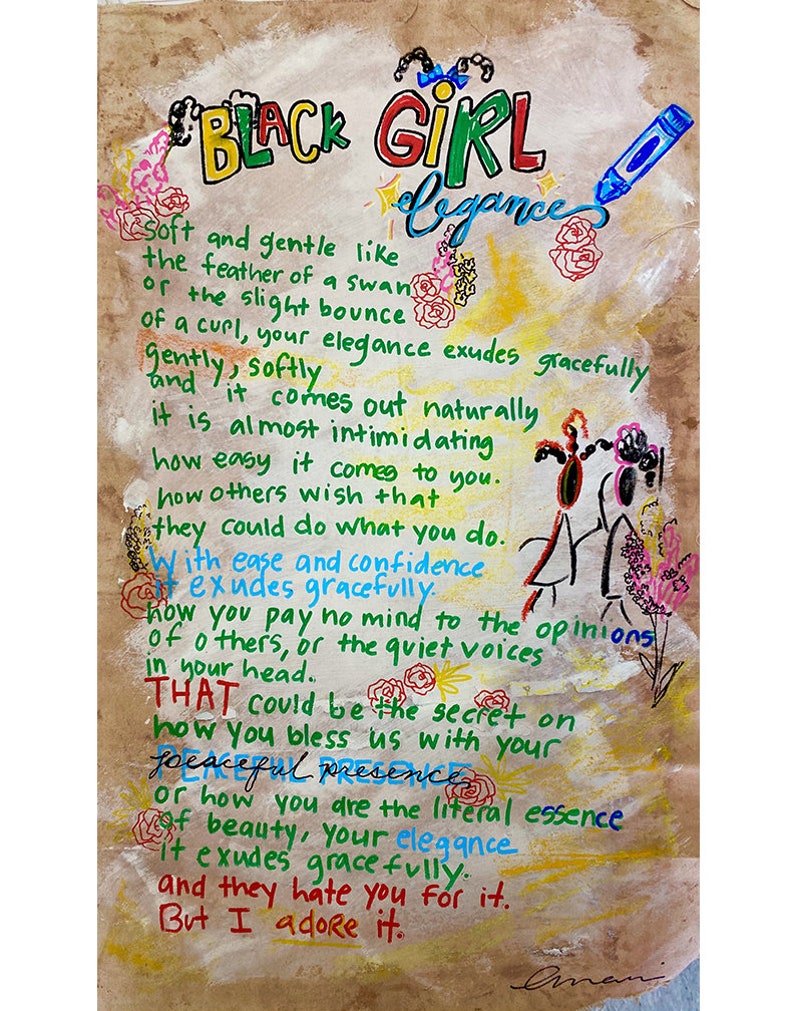 BLACK GiRL
elegance
soft and gentle like
the feather of a swan
or the slight bounce
of a curl, your elegance exudes gracefully
gently, softly
and it comes out naturally
it is almost intimidating
how easy it comes to you.
how others wish that
they could do what you do.
With ease and confidence
it exudes gracefully.
how you pay no mind to the opinions
of others, or the quiet voices
in your head.
THAT could be the secret on
how you bless us with your
PEACEFUL PRESENCE
peaceful presence
or how you are the literal essence
of beauty, your elegance
it exudes gracefully.
and they hate you for it.
But I adore it.